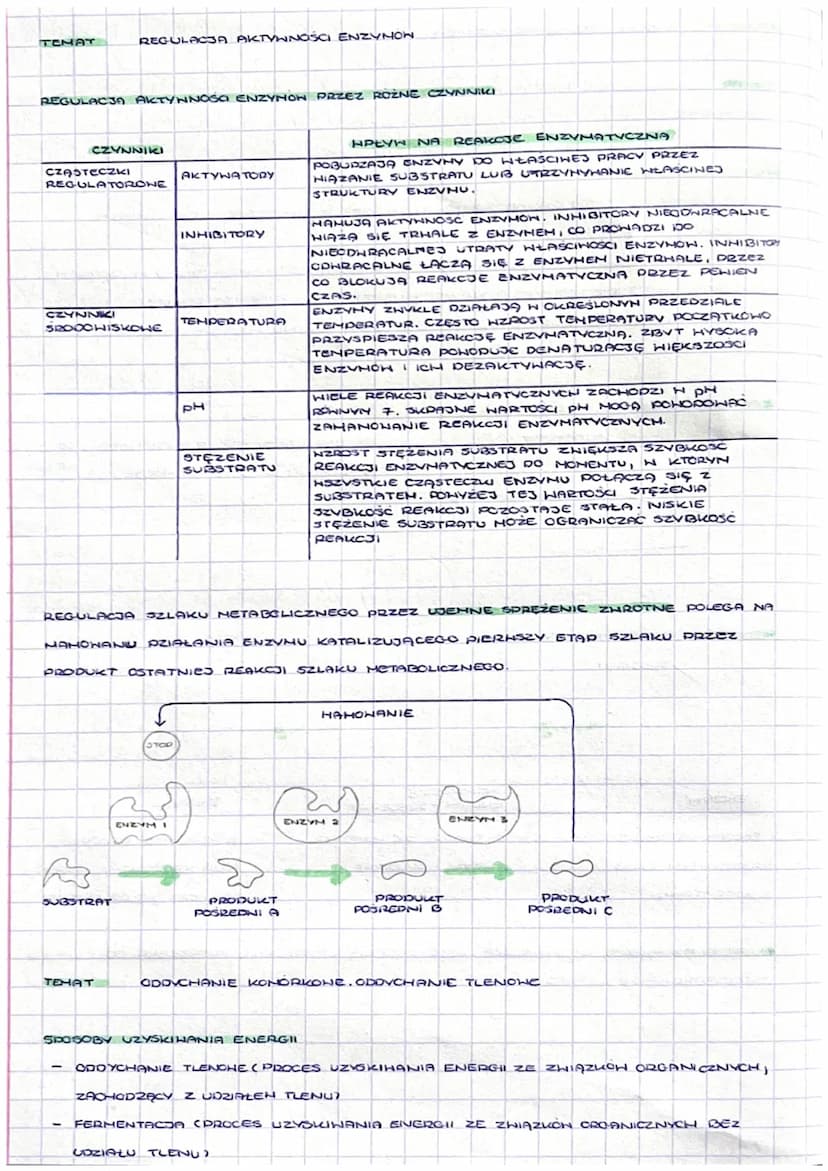 TEMAT REGULACJA AKTYWNOŚCI ENZYMÓW
REGULACJA AKTYWNOŚCI ENZYMÓW PRZEZ RÓŻNE CZYNNIKI
CZYNNIKI
WPŁYW NA REAKCJE ENZYMATYCZNĄ
CZĄSTECZKI
REGULATOROWE
AKTYWATORY
POBUDZAJĄ ENZYMY DO WŁAŚCIWEJ PRACY PRZEZ
WIĄZANIE SUBSTRATU LUB UTRZYMYWANIE WŁAŚCIWEJ
STRUKTURY ENZYMU.
INHIBITORY
HAMUJĄ AKTYWNOŚĆ ENZYMÓW. INHIBITORY NIEODWRACALNE
WIĄŻĄ SIĘ TRWALE Z ENZYMEM, CO PROWADZI DO
NIEODWRACALNEJ UTRATY WŁAŚCIWOŚCI ENZYMÓW. INHIBITORY
ODWRACALNE ŁĄCZĄ SIĘ Z ENZYMEM NIETRWALE, PRZEZ
CO BLOKUJĄ REAKCJE ENZYMATYCZNĄ PRZEZ PEWIEN
CZAS.
CZYNNIKI
ŚRODOWISKOWE
TEMPERATURA
ENZYMY ZWYKLE DZIAŁAJĄ W OKREŚLONYM PRZEDZIALE
TEMPERATUR. CZĘSTO WZROST TEMPERATURY POCZĄTKOWO
PRZYSPIESZA REAKCJĘ ENZYMATYCZNĄ. ZBYT WYSOKA
TEMPERATURA POWODUJE DENATURACJĘ WIĘKSZOŚCI
ENZYMÓW I ICH DEZAKTYWACJĘ.
pH
WIELE REAKCJI ENZYMATYCZNYCH ZACHODZI W pH
RÓWNYM 7. SKRAJNE WARTOŚCI pH MOGĄ POWODOWAĆ
ZAHAMOWANIE REAKCJI ENZYMATYCZNYCH.
STĘŻENIE
SUBSTRATU
WZROST STĘŻENIA SUBSTRATU ZWIĘKSZA SZYBKOŚĆ
REAKCJI ENZYMATYCZNEJ DO MOMENTU, W KTÓRYM
WSZYSTKIE CZĄSTECZKI ENZYMU POŁĄCZĄ SIĘ Z
SUBSTRATEM. POWYŻEJ TEJ WARTOŚCI STĘŻENIA
SZYBKOŚĆ REAKCJI POZOSTAJE STAŁA. NISKIE
STĘŻENIE SUBSTRATU MOŻE OGRANICZAĆ SZYBKOŚĆ
REAKCJI
REGULACJA SZLAKU METABOLICZNEGO PRZEZ UJEMNE SPRZĘŻENIE ZWROTNE POLEGA NA
HAMOWANIU DZIAŁANIA ENZYMU KATALIZUJĄCEGO PIERWSZY ETAP SZLAKU PRZEZ
PRODUKT OSTATNIEJ REAKCJI SZLAKU METABOLICZNEGO.
HAMOWANIE
STOP
ENZYM 1
ENZYM 2
ENZYM 3
SUBSTRAT
PRODUKT
POŚREDNI A
PRODUKT
POŚREDNI B
PRODUKT
POŚREDNI C
TEMAT ODDYCHANIE KOMÓRKOWE. ODDYCHANIE TLENOWE
SPOSOBY UZYSKIWANIA ENERGII
– ODDYCHANIE TLENOWE (PROCES UZYSKIWANIA ENERGII ZE ZWIĄZKÓW ORGANICZNYCH,
ZACHODZĄCY Z UDZIAŁEM TLENU)
– FERMENTACJA (PROCES UZYSKIWANIA ENERGII ZE ZWIĄZKÓW ORGANICZNYCH BEZ
UDZIAŁU TLENU)